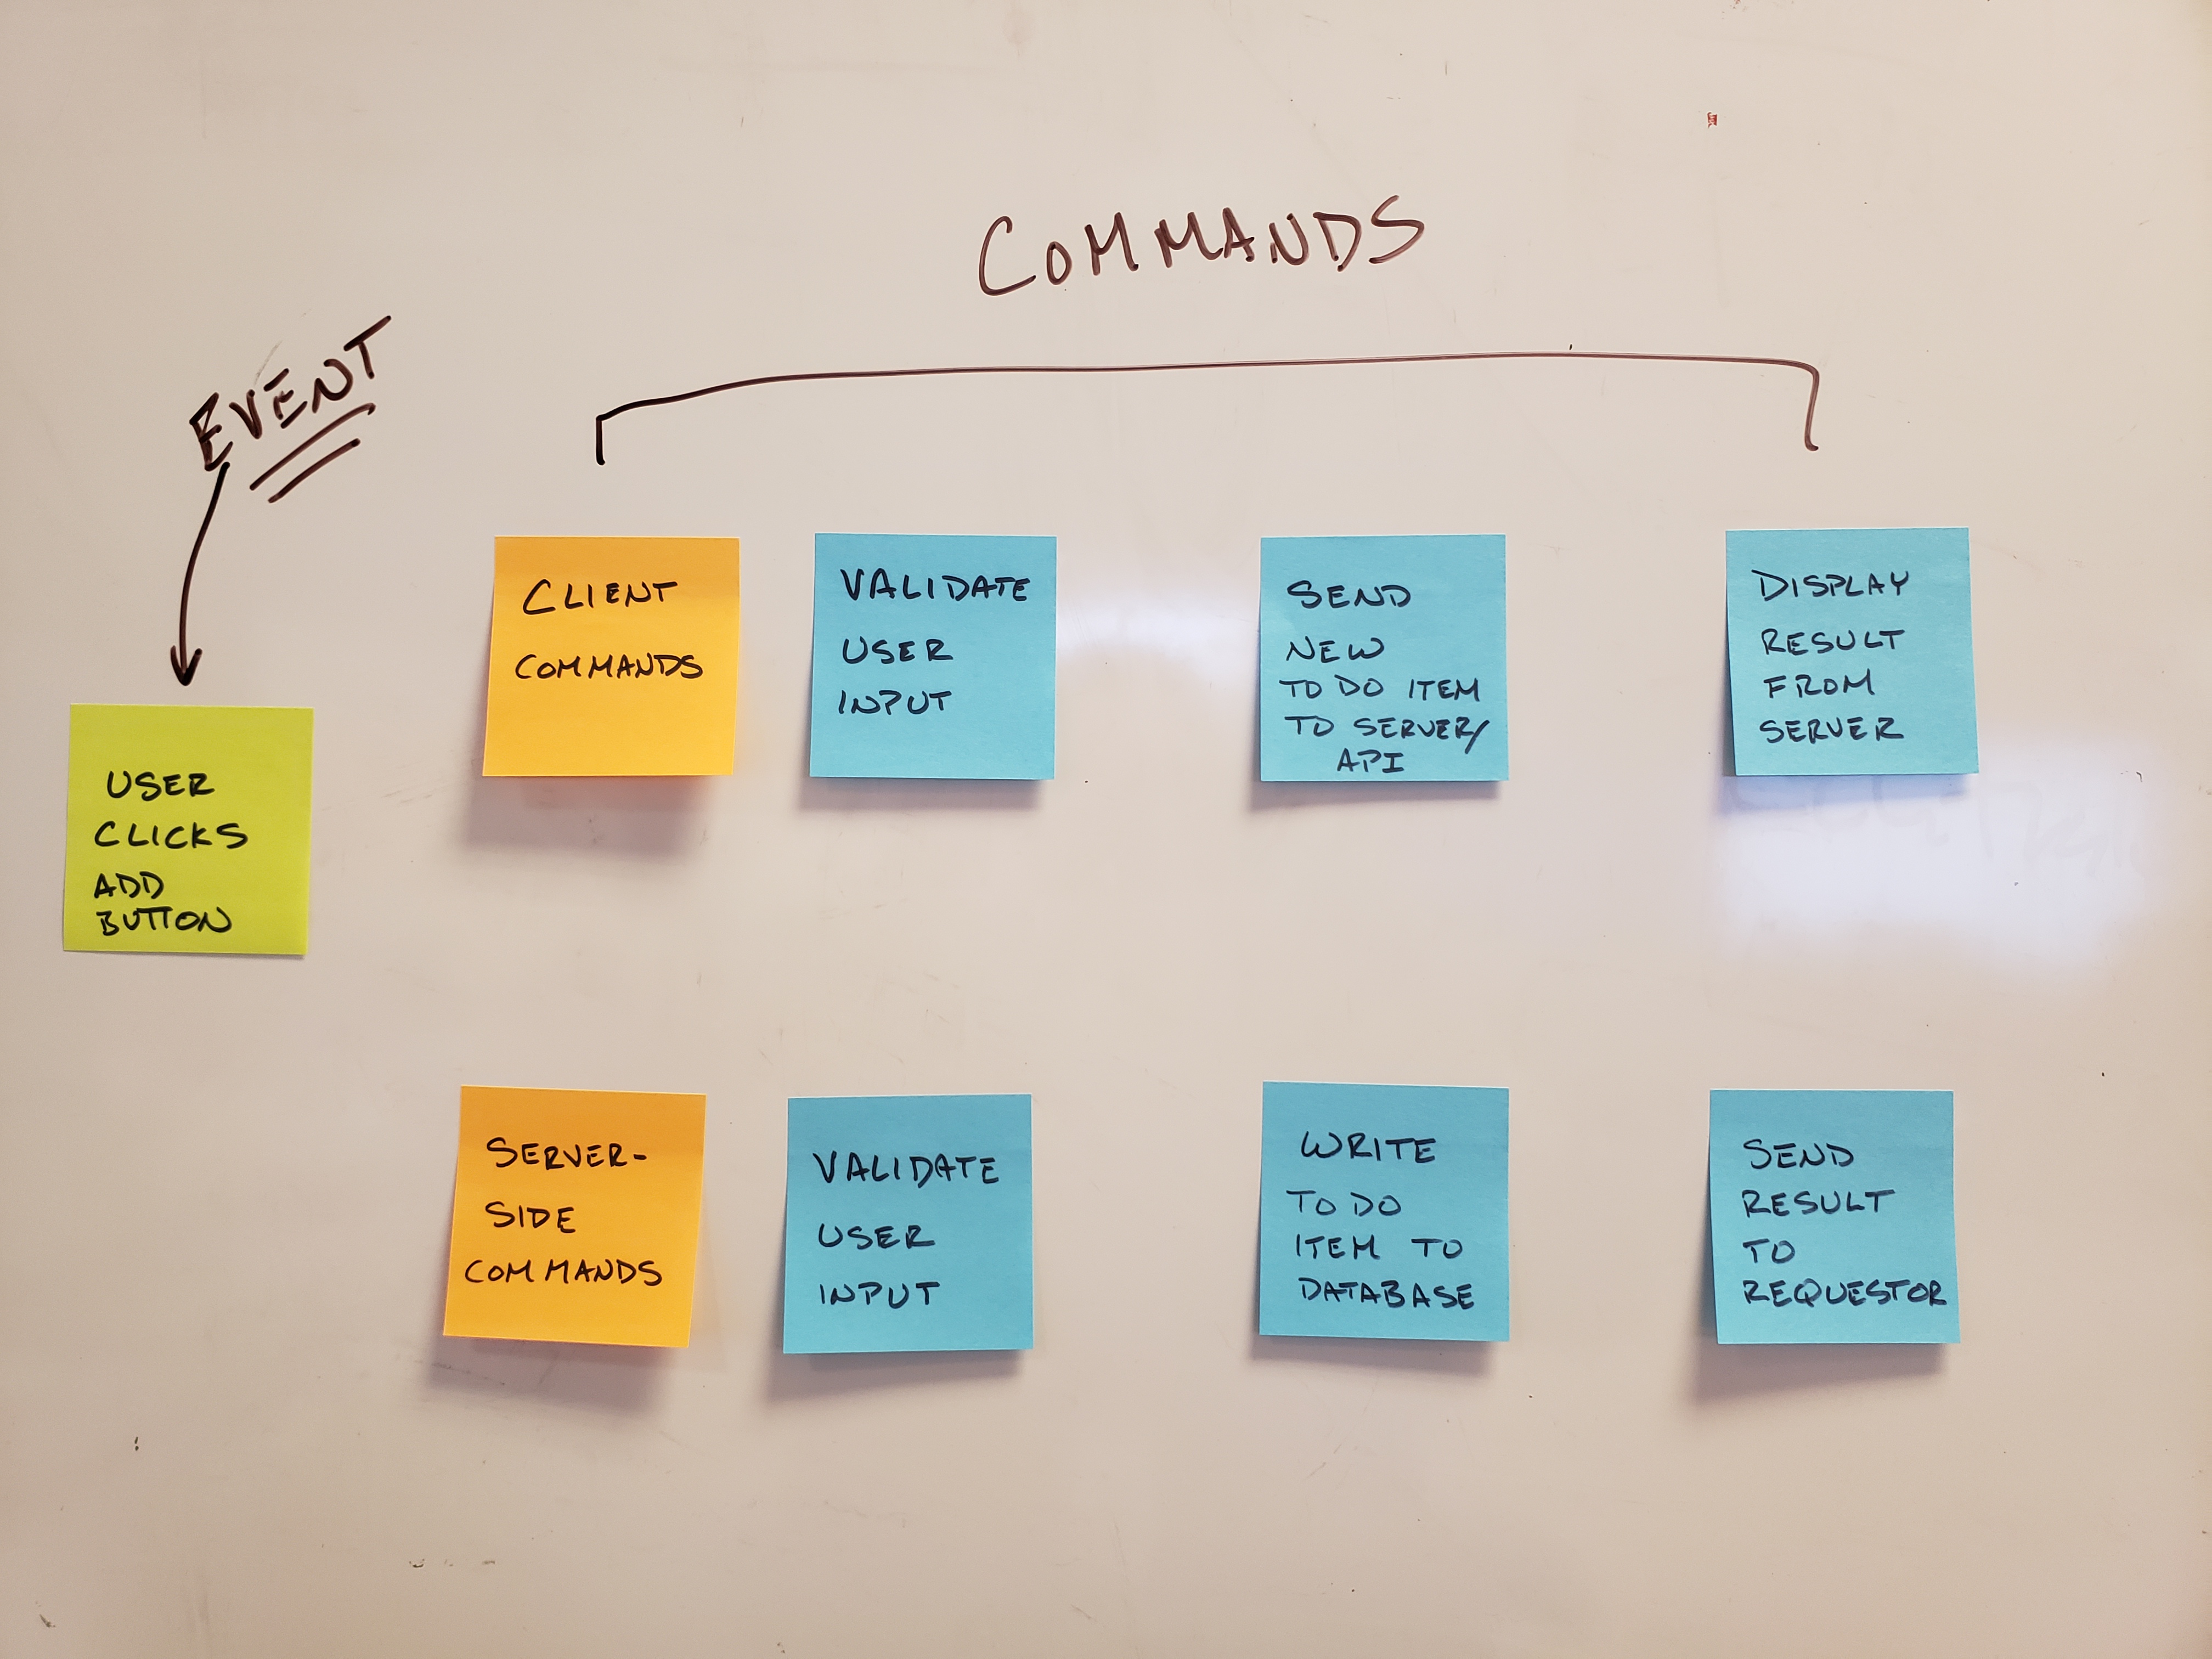 COMMANDS
EVENT
USER
CLICKS
ADD
BUTTON
CLIENT
COMMANDS
VALIDATE
USER
INPUT
SEND
NEW
TO DO ITEM
TO SERVER/
API
DISPLAY
RESULT
FROM
SERVER
SERVER-
SIDE
COMMANDS
VALIDATE
USER
INPUT
WRITE
TO DO
ITEM TO
DATABASE
SEND
RESULT
TO
REQUESTOR